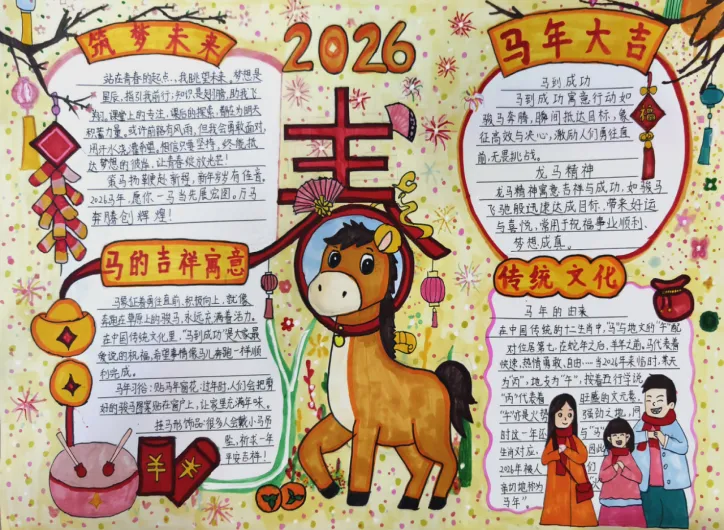 2026
春
筑梦未来
站在青春的起点,我眺望未来,梦想是
星辰,指引我前行;知识是翅膀,助我飞
翔。课堂上的专注,课后的探索,都在为明天
积蓄力量。或许前路有风雨,但我会勇敢面对,
用汗水浇灌希望。相信只要坚持,终能抵
达梦想的彼岸,让青春绽放光芒!
2026马年,愿你一马当先展宏图。万马
奔腾创辉煌!
马的吉祥寓意
马象征着勇往直前,积极向上,就像
奔跑在草原上的骏马,永远充满着活力。
在中国传统文化里,“马到成功”是大家最
常说的祝福,希望事情像马儿奔跑一样顺
利完成。
马年习俗:贴马年窗花:过年时,人们会把剪
好的骏马图案贴在窗户上,让家里充满年味。
挂马形饰品:很多人会戴小马吊
坠,祈求一年
平安吉祥!
羊
马年大吉
马到成功
马到成功寓意行动如
骏马奔腾,瞬间抵达目标,象
征高效与决心,激励人们勇往直
前,无畏挑战。
龙马精神
龙马精神寓意吉祥与成功,如骏马
飞驰般迅速达成目标,带来好运
与喜悦,常用于祝福事业顺利、
梦想成真。
福
传统文化
马年的由来
在中国传统的十二生肖中,“马”与地支的“午”配
对位居第七,在蛇年之后,羊年之前,马代表着
快速,热情勇敢、自由……当2026年来临时,某天
为“丙”,地支为“午”,按着五行学说
“丙”代表着旺盛的火元素,
“午”亦是火势强劲之地,同
时这一年还与“马”
生肖对应.因此
2026年被人们
亲切地称为“火
马年”